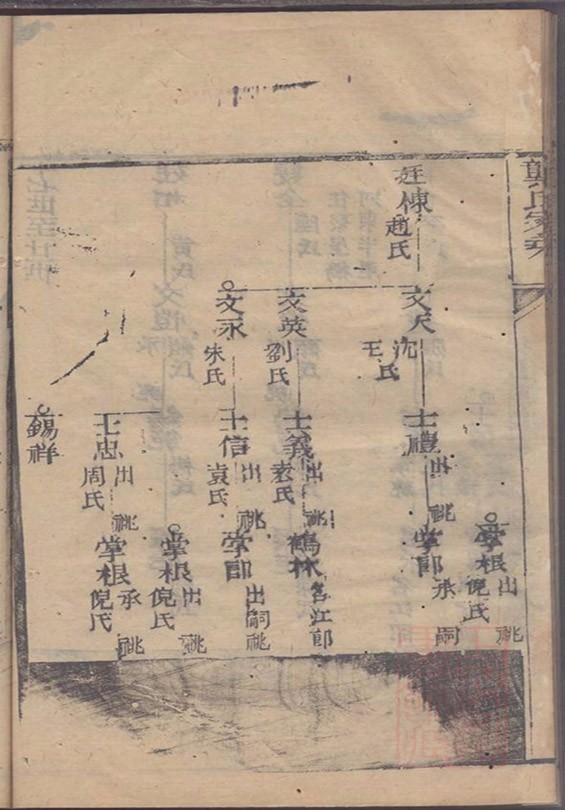 龔氏家乘
廷棟
趙氏
文天
沈氏
王氏
文英
劉氏
文永
朱氏
士禮
出祧
士義
出祧
袁氏
士信
出祧
袁氏
士忠
出祧
周氏
錫祥
掌根
出祧
倪氏
掌郎
承嗣
鶴林
名江郎
掌郎
出嗣祧
掌根
出祧
倪氏
掌根
承祧
倪氏